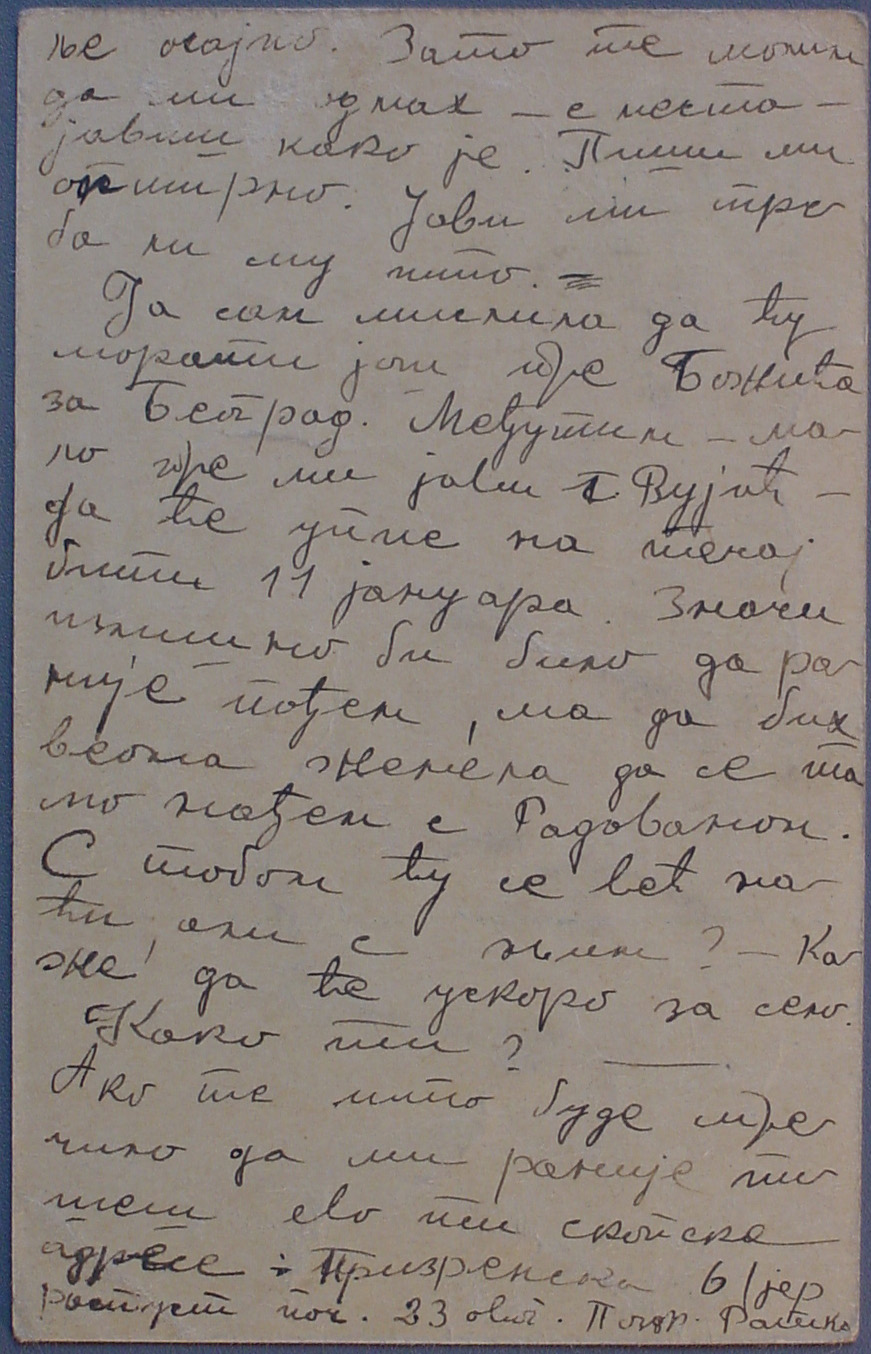 ње очајно. Зато те молим
да ми одмах – с места –
јавиш како је. Пиши ми
опширно. Јави ми тре
ба ли му што. =
Ја сам мислила да ћу
морати још пре Божића
за Београд. Међутим – ма-
ло пре ми јави Вујић –
да ће упис на течај
бити 11 јануара. Значи
излишно би било да ра-
није пођем, ма да бих
веома желела да се та
мо нађем с Радованом.
С тобом ћу се већ на-
ћи, али с њим? – Ка-
же да ће ускоро за село.
Како ти? —
Ако те што буде спре
чило да ми раније пи-
шеш ево ти скопска
адреса: Призренска 61 јер
распуст поч. 23 овог. Поздр. Ратка